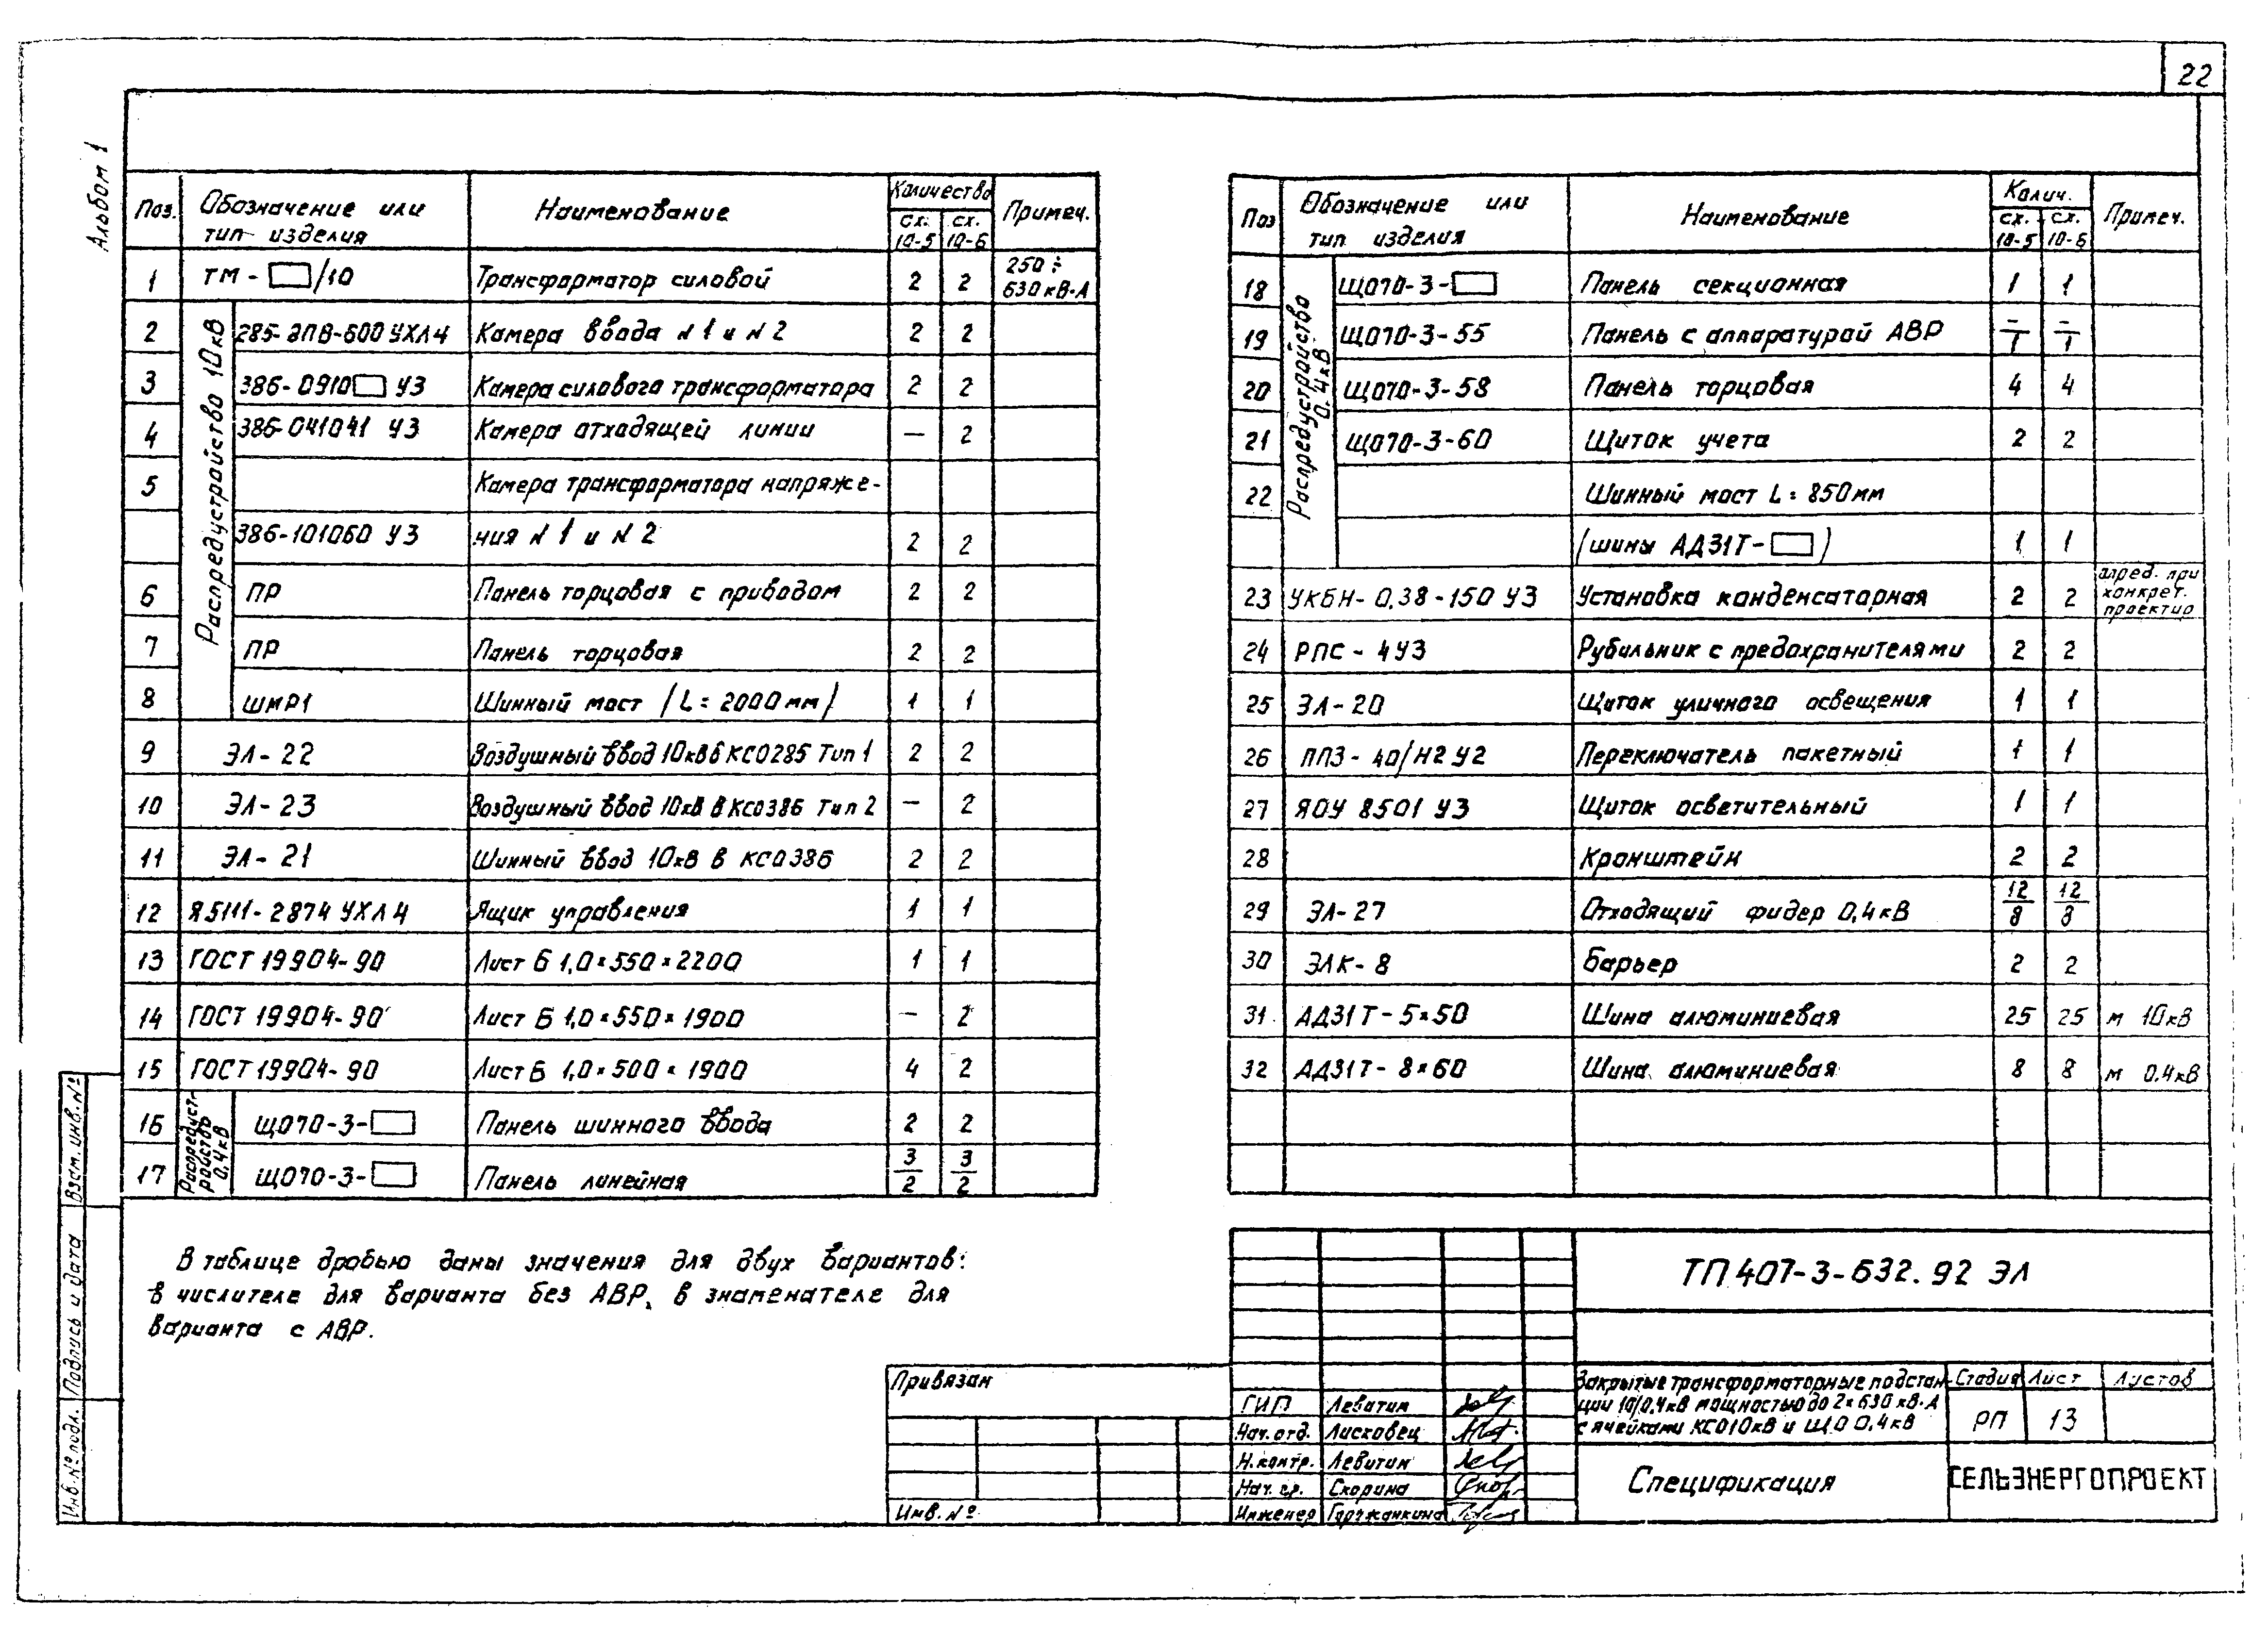 22
Альбом 1
Поз. Обозначение или тип изделия Наименование Количество сх. 10-5 сх. 10-6 Примеч.
1 ТМ-□/10 Трансформатор силовой 2 2 250 ÷ 630 кВ·А
Распредустройство 10кВ
2 285-ЭПВ-600 УХЛ4 Камера ввода N 1 и N 2 2 2
3 386-0910□ У3 Камера силового трансформатора 2 2
4 386-041041 У3 Камера отходящей линии — 2
5 Камера трансформатора напряже-
386-101060 У3 ния N 1 и N 2 2 2
6 ПР Панель торцовая с приводом 2 2
7 ПР Панель торцовая 2 2
8 ШМР1 Шинный мост /L = 2000 мм/ 1 1
9 ЭЛ-22 Воздушный ввод 10кВ в КСО285 Тип 1 2 2
10 ЭЛ-23 Воздушный ввод 10кВ в КСО386 Тип 2 — 2
11 ЭЛ-21 Шинный ввод 10кВ в КСО386 2 2
12 Я5111-2874 УХЛ4 Ящик управления 1 1
13 ГОСТ 19904-90 Лист Б 1,0×550×2200 1 1
14 ГОСТ 19904-90 Лист Б 1,0×550×1900 — 2
15 ГОСТ 19904-90 Лист Б 1,0×500×1900 4 2
Распредустройство 0,4кВ
16 ЩО70-3-□ Панель шинного ввода 2 2
17 ЩО70-3-□ Панель линейная 3/2 3/2
Поз Обозначение или тип изделия Наименование Колич. сх. 10-5 сх. 10-6 Примеч.
Распредустройство 0,4кВ
18 ЩО70-3-□ Панель секционная 1 1
19 ЩО70-3-55 Панель с аппаратурой АВР -/1 -/1
20 ЩО70-3-58 Панель торцовая 4 4
21 ЩО70-3-60 Щиток учета 2 2
22 Шинный мост L = 850мм
(шины АД31Т-□) 1 1
23 УКБН-0,38-150 У3 Установка конденсаторная 2 2 опред. при конкрет. проектир
24 РПС-4У3 Рубильник с предохранителями 2 2
25 ЭЛ-20 Щиток уличного освещения 1 1
26 ПП3-40/Н2 У2 Переключатель пакетный 1 1
27 ЯОУ 8501 У3 Щиток осветительный 1 1
28 Кронштейн 2 2
29 ЭЛ-27 Отходящий фидер 0,4кВ 12/8 12/8
30 ЭЛК-8 Барьер 2 2
31 АД31Т-5×50 Шина алюминиевая 25 25 м 10кВ
32 АД31Т-8×60 Шина алюминиевая 8 8 м 0.4кВ
В таблице дробью даны значения для двух вариантов:
в числителе для варианта без АВР, в знаменателе для
варианта с АВР.
Взам.инв.№
Подпись и дата
Инв.№ подл.
Привязан
Инв. №
ТП 407-3-632.92 ЭЛ
ГИП Левитин
Нач.отд. Лисковец
Н.контр. Левитин
Нач. гр. Скорина
Инженер Горжанкина
Закрытые трансформаторные подстан
ции 10/0,4кВ мощностью до 2×630 кВ·А
с ячейками КСО10кВ и ЩО 0,4кВ
Стадия Лист Листов
РП 13
Спецификация
СЕЛЬЭНЕРГОПРОЕКТ